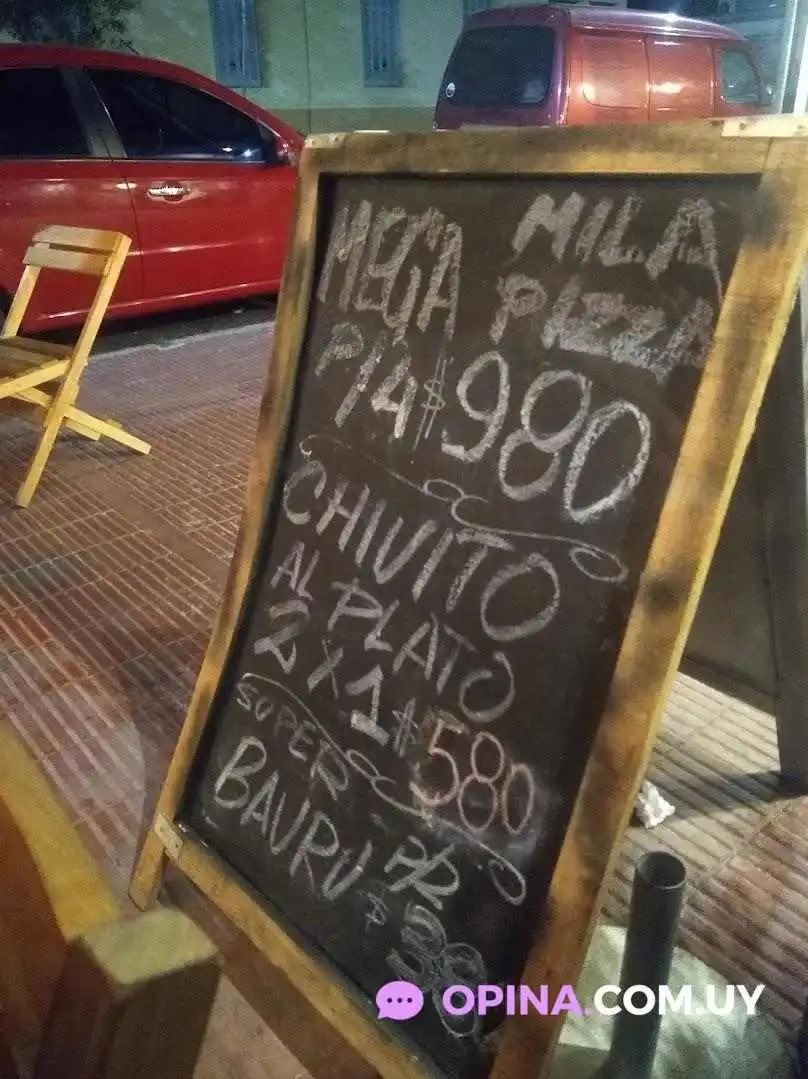 MEGA MILA
PIZZA
P/4 $980
CHIVITO
AL PLATO
2X1 $580
SUPER
BAURU
$
OPINA.COM.UY